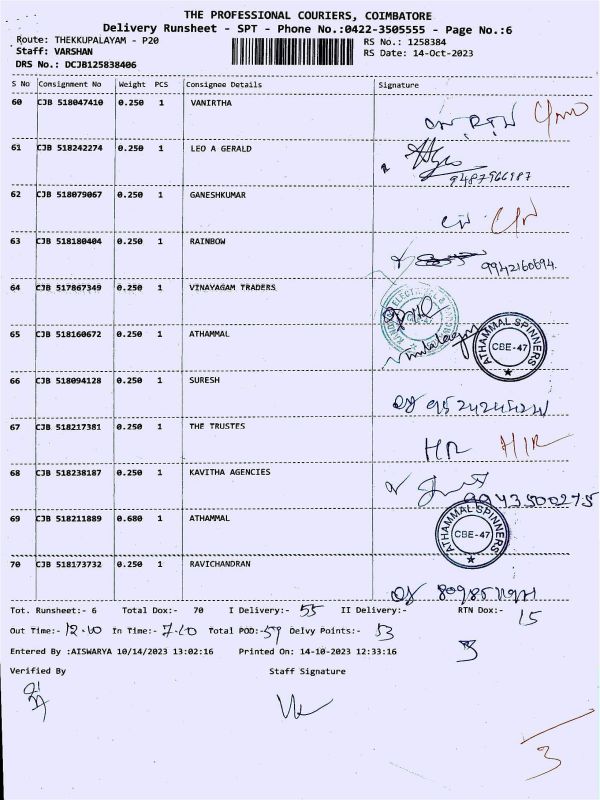 THE PROFESSIONAL COURIERS, COIMBATORE
Delivery Runsheet - SPT - Phone No.:0422-3505555 - Page No.:6
Route: THEKKUPALAYAM - P20
RS No.: 1258384
Staff: VARSHAN
RS Date: 14-Oct-2023
DRS No.: DCJB125838406
S No Consignment No Weight PCS Consignee Details Signature
60 CJB 518047410 0.250 1 VANIRTHA
61 CJB 518242274 0.250 1 LEO A GERALD
9487966187
62 CJB 518079067 0.250 1 GANESHKUMAR
63 CJB 518180404 0.250 1 RAINBOW
9942160694.
64 CJB 517867349 0.250 1 VINAYAGAM TRADERS
65 CJB 518160672 0.250 1 ATHAMMAL
ATHAMMAL SPINNERS
CBE-47
66 CJB 518094128 0.250 1 SURESH
67 CJB 518217381 0.250 1 THE TRUSTES
68 CJB 518238187 0.250 1 KAVITHA AGENCIES
9943500275
69 CJB 518211889 0.680 1 ATHAMMAL
ATHAMMAL SPINNERS
CBE-47
70 CJB 518173732 0.250 1 RAVICHANDRAN
Tot. Runsheet:- 6 Total Dox:- 70 I Delivery:- 55 II Delivery:- RTN Dox:- 15
Out Time:- 12.40 In Time:- Total POD:- 59 Delvy Points:- 53
Entered By :AISWARYA 10/14/2023 13:02:16 Printed On: 14-10-2023 12:33:16
Verified By Staff Signature
3